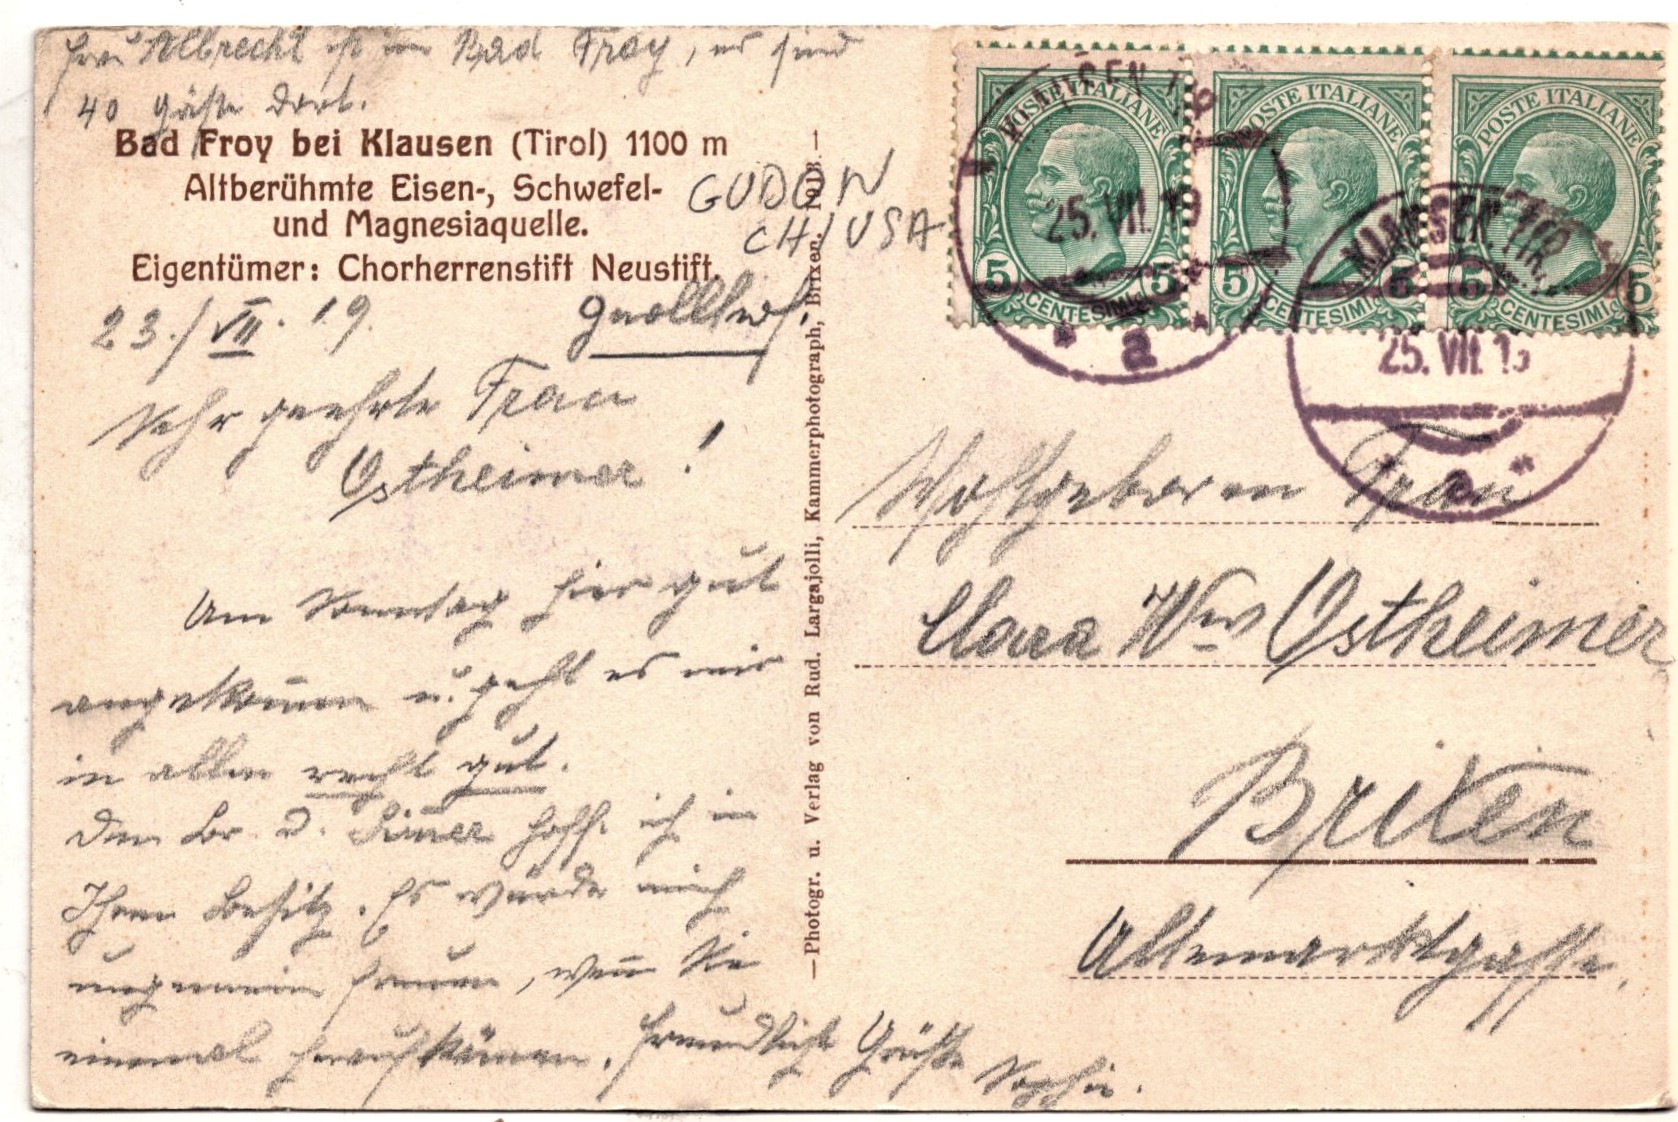 Frau Albrecht ist im Bad Froy, es sind
40 Gäste dort.
Bad Froy bei Klausen (Tirol) 1100 m
Altberühmte Eisen-, Schwefel-
und Magnesiaquelle.
Eigentümer: Chorherrenstift Neustift.
GUDON
CHIUSA
23./VII. 19.
Sehr geehrte Frau
Ostheimer!
Am Sonntag hier gut
angekom̅en u. geht es mir
in allem recht gut.
Den Br. d. hoff. ich in
Ihrem Besitz. Es würde mich
ungemein freuen, wen̅ Sie
einmal heraufkom̅en. Freundlichst Grüßt
Sophie.
—Photogr. u. Verlag von Rud. Largajolli, Kammerphotograph, Brixen. 1913.—
POSTE ITALIANE
5 5
CENTESIMI
POSTE ITALIANE
5 5
CENTESIMI
POSTE ITALIANE
5 5
CENTESIMI
25. VII. 19
a
KLAUSEN, TIR.
25. VII. 19
a
Wohlgeboren Frau
Clara Wwe Ostheimer
Brixen
Altemarktgasse.